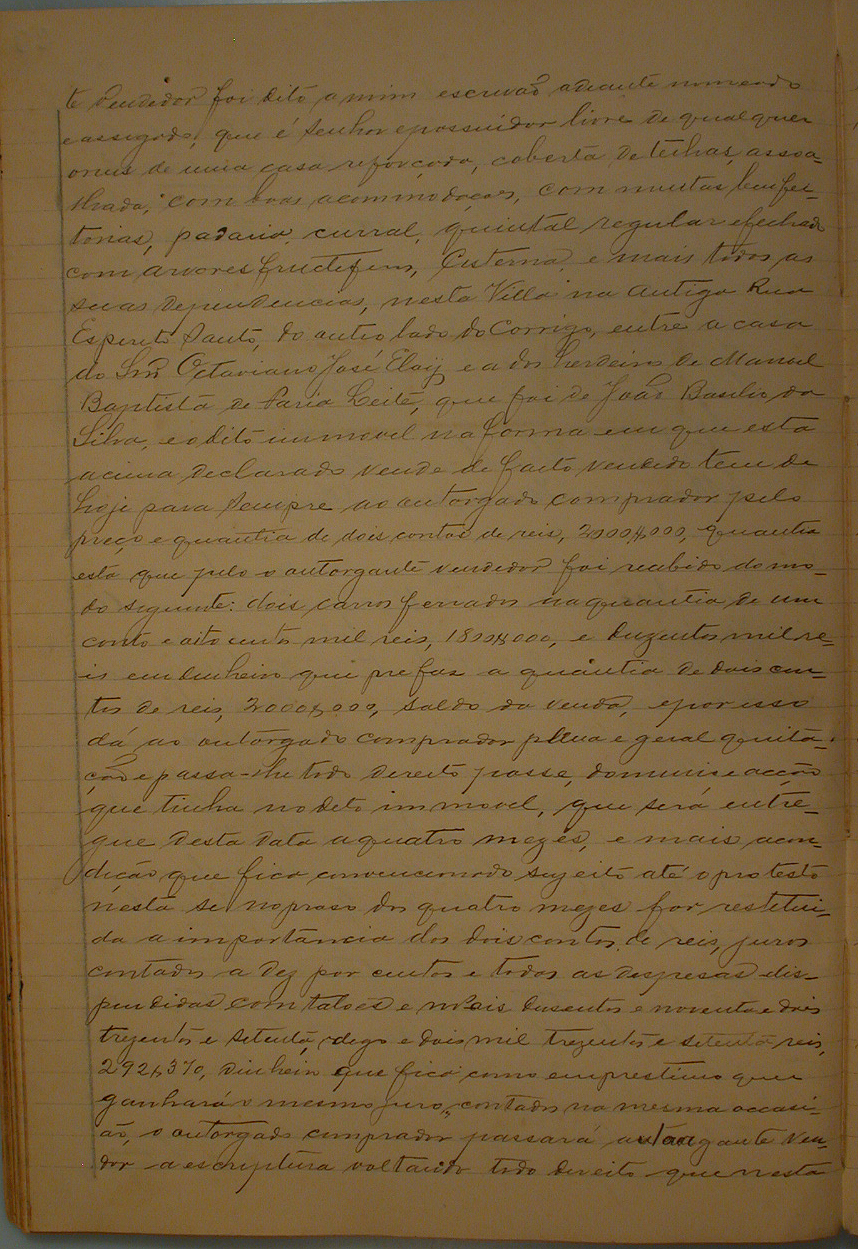 te vendedor foi dito a mim escrivaõ adiante nomeado
e assignado, que é senhor e possuidor livre de qualquer
onus de uma casa reforçada, coberta de telhas, assoa-
lhada, com boas acommodaçoes, com muitas bemfei-
torias, curral, quintal regular e fechado
com arvores fructiferas, Cisterna, e mais todas as
suas dependencias, nesta Villa na antiga Rua
Espirito Santo, do outro lado do Corrigo, entre a casa
do Snr Octaviano José Eloy e a dos herdeiros de Manoel
Baptista de Faria Leite, que foi de João Basilio da
Silva, e o dito immovel na forma em que está
acima declarado vende de facto vendido tem de
hoje para sempre ao outorgado comprador pelo
preço e quantia de dois contos de reis, 2000$000, quantia
esta que pelo o outorgante vendedor foi recebido do mo-
do seguinte: dois carros ferrados na quantia de um
conto e oito centos mil reis, 1800$000, e duzentos mil re-
is em dinheiro que prefaz a quantia de dois con-
tos de reis, 2000$000, saldo da venda, e por isso
dá ao outorgado comprador plena e geral quita-
ção e passa-lhe todo direito posse, dominio e acção
que tinha no dito immovel, que será entre-
gue desta data a quatro mezes, e mais a con-
dição que fica convencionado sujeito até o protesto
nesta se no praso dos quatro mezes for restitui-
da a importancia dos dois contos de reis, juros
contados a dez por centos e todas as despesas dis-
pendidas com taloes e mais dusentos e noventa e dois
trezentos e setenta, digo e dois mil trezentos e setenta reis,
292$370, dinheiro que fica como emprestimo que
ganhará o mesmo juro, contado na mesma occasi-
ão, o outorgado comprador passará a outorgante ven-
dor a escriptura voltando todo direito que nesta